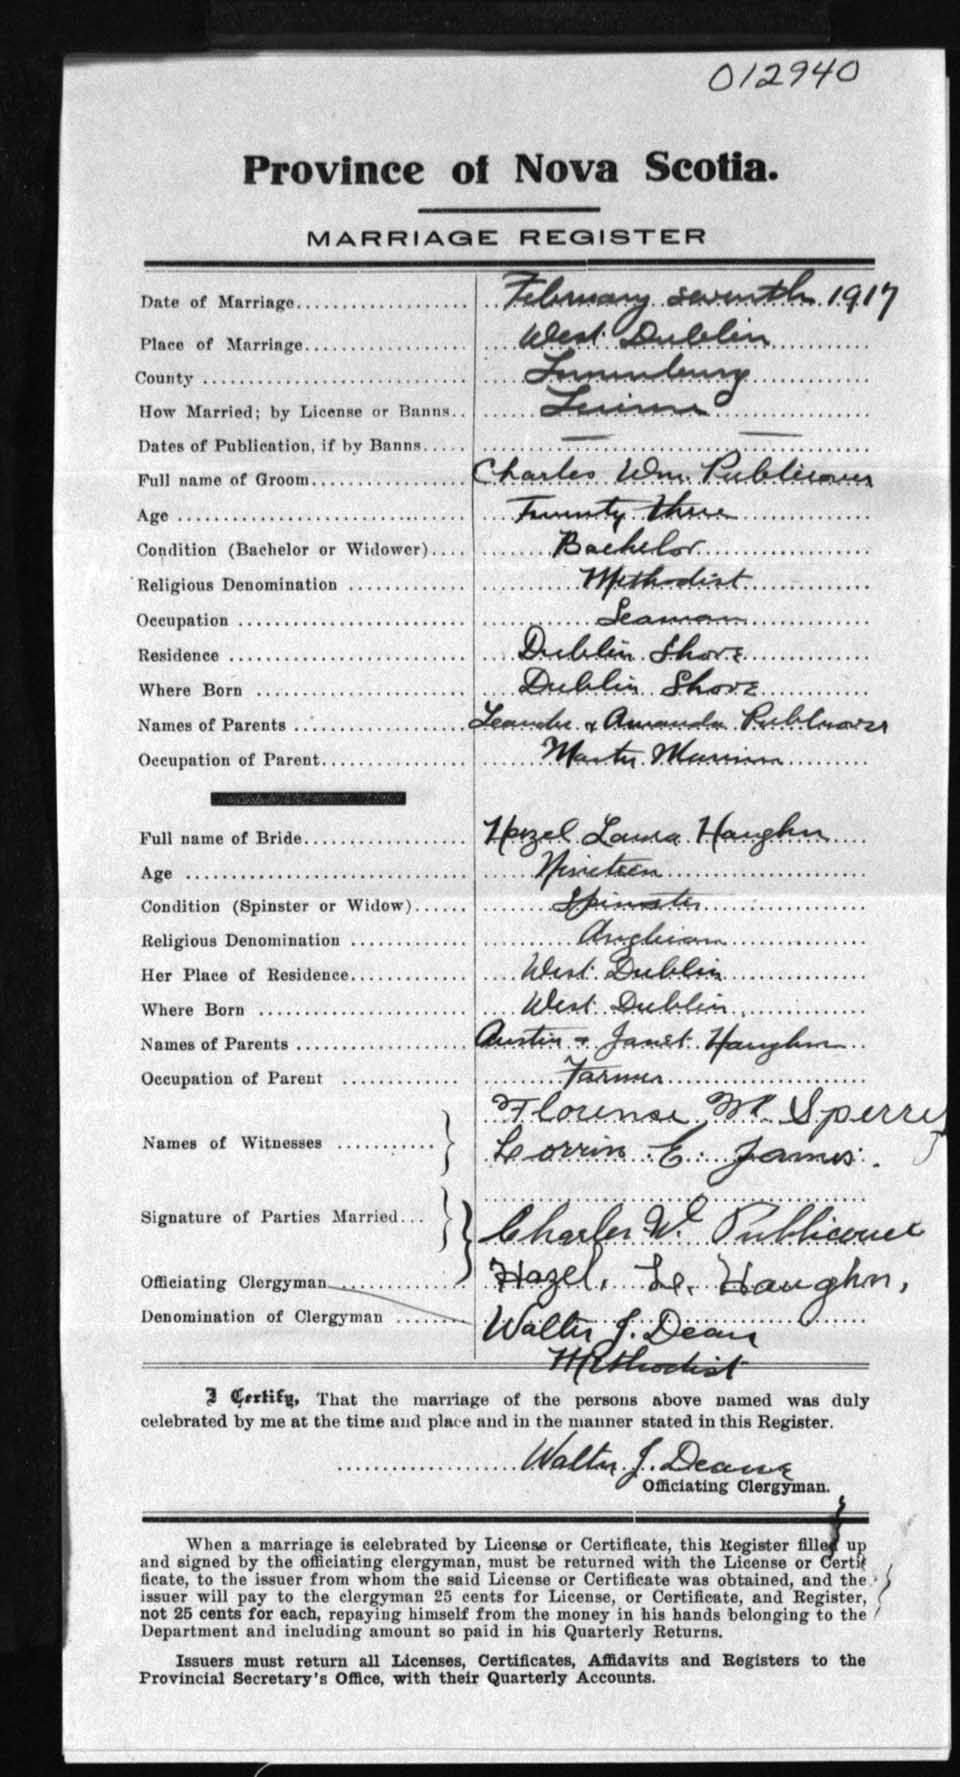 012940
Province of Nova Scotia.
MARRIAGE REGISTER
Date of Marriage February seventh 1917
Place of Marriage West Dublin
County Lunenburg
How Married; by License or Banns License
Dates of Publication, if by Banns — —
Full name of Groom Charles Wm. Publicover
Age Twenty three
Condition (Bachelor or Widower) Bachelor
Religious Denomination Methodist
Occupation Seaman
Residence Dublin Shore
Where Born Dublin Shore
Names of Parents Leander & Amanda Publicover
Occupation of Parent Master Mariner
Full name of Bride Hazel Laura Haughn
Age Nineteen
Condition (Spinster or Widow) Spinster
Religious Denomination Anglican
Her Place of Residence West Dublin
Where Born West Dublin
Names of Parents Austin & Janet Haughn
Occupation of Parent Farmer
Florense M Sperry
Names of Witnesses
Lorrin E. James.
Signature of Parties Married Charles W. Publicover
Officiating Clergyman Hazel, L. Haughn,
Denomination of Clergyman Walter J. Dean
Methodist
I Certify, That the marriage of the persons above named was duly
celebrated by me at the time and place and in the manner stated in this Register.
Walter J. Deane
Officiating Clergyman.
When a marriage is celebrated by License or Certificate, this Register filled up
and signed by the officiating clergyman, must be returned with the License or Certi
ficate, to the issuer from whom the said License or Certificate was obtained, and the
issuer will pay to the clergyman 25 cents for License, or Certificate, and Register,
not 25 cents for each, repaying himself from the money in his hands belonging to the
Department and including amount so paid in his Quarterly Returns.
Issuers must return all Licenses, Certificates, Affidavits and Registers to the
Provincial Secretary's Office, with their Quarterly Accounts.